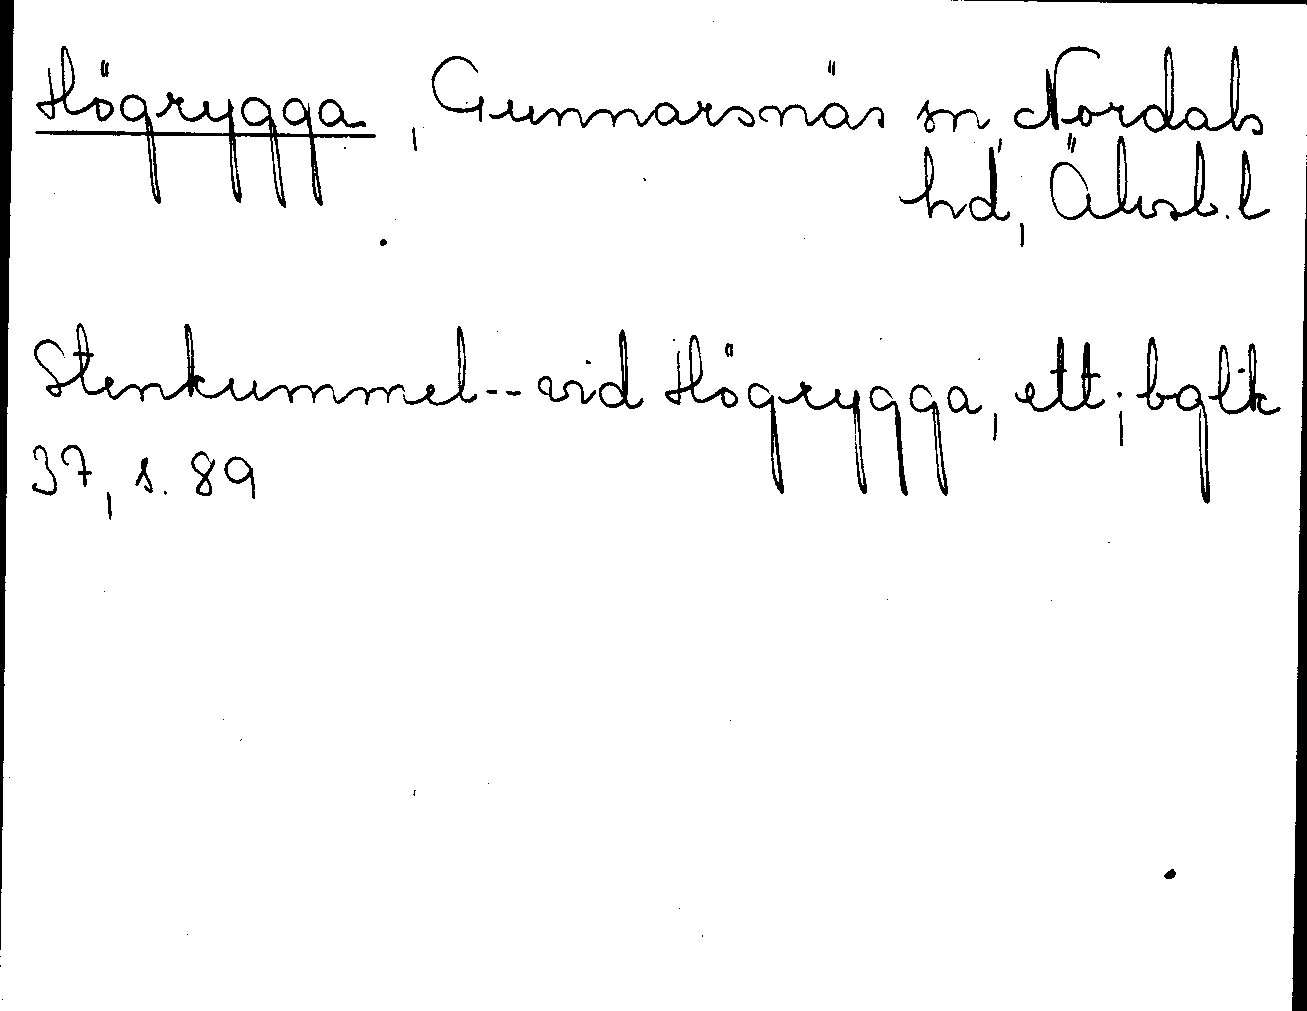 Högrygga, Gunnarsnäs sn, Nordals
hd, Älvsb. l
Stenkummel -- vid Högrygga, ett; bglk
37, s. 89